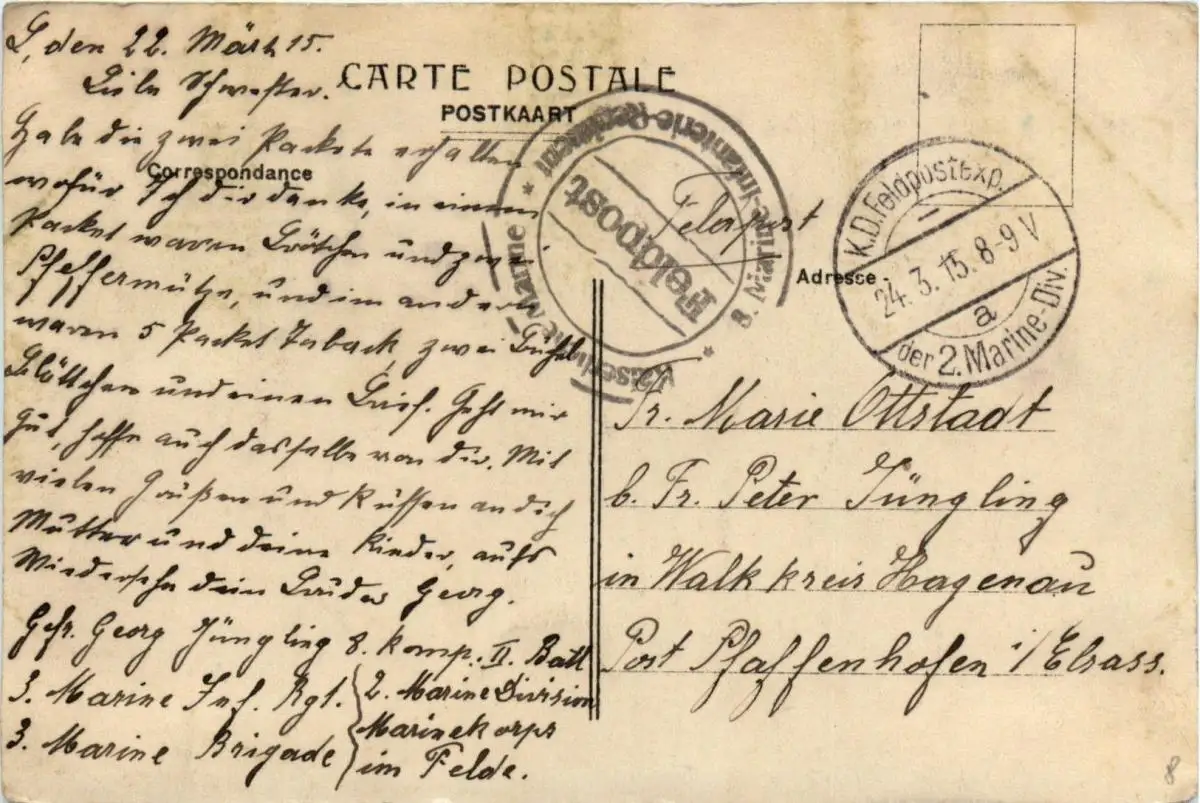 L, den 22. März 15.
Liebe Schwester.
Habe die zwei Packete erhalten
wofür Ich dir danke, in einem
Packet waren Brötchen und zwei
Pfeffermütze, und im andern
waren 5 Packet Taback, zwei
Blättchen und einen Brief. Geht mir
gut, hoffe auch dasselbe von dir. Mit
vielen Grüßen und Küssen an dich
Mutter und deine Kinder, aufs
Wiedersehn dein Bruder Georg.
Gefr. Georg Jüngling 8. Komp. II. Batl
3. Marine Inf. Rgt.
3. Marine Brigade
2. Marine Division
Marinekorps
im Felde.
CARTE POSTALE
POSTKAART
Correspondance
Kaiserliche Marine * 3. Marine-Infanterie-Regiment *
Feldpost
Feldpost
Adresse
K.D. Feldpostexp.
24. 3. 15. 8-9 V
a
der 2. Marine-Div.
Fr. Marie Ottstadt
b. Fr. Peter Jüngling
in Walk kreis Hagenau
Post Pfaffenhofen i/Elsass.
8